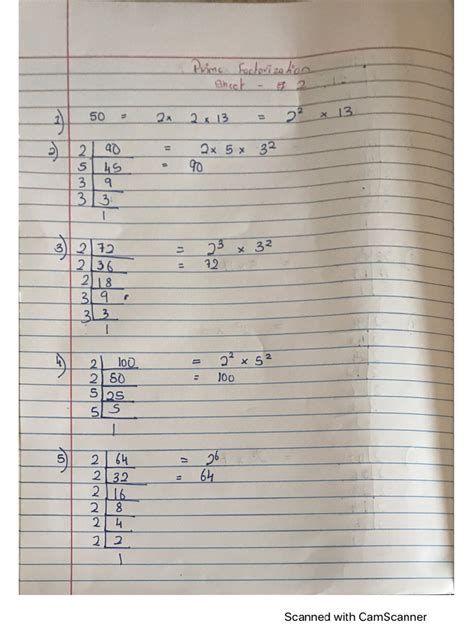 Prime Factorization
Sheet - of 2
1) 50 = 2x 2 x 13 = 2² x 13
2) 2 | 90 = 2 x 5 x 3²
5 | 45 = 90
3 | 9
3 | 3
1
3) 2 | 72 = 2³ x 3²
2 | 36 = 72
2 | 18
3 | 9
3 | 3
1
4) 2 | 100 = 2² x 5²
2 | 50 = 100
5 | 25
5 | 5
1
5) 2 | 64 = 2⁶
2 | 32 = 64
2 | 16
2 | 8
2 | 4
2 | 2
1
Scanned with CamScanner